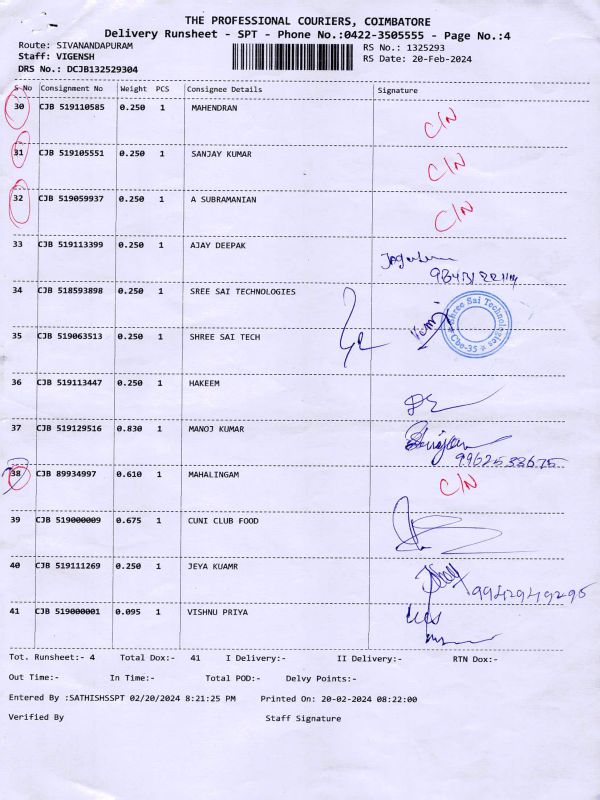 THE PROFESSIONAL COURIERS, COIMBATORE
Delivery Runsheet - SPT - Phone No.:0422-3505555 - Page No.:4
Route: SIVANANDAPURAM RS No.: 1325293
Staff: VIGENSH RS Date: 20-Feb-2024
DRS No.: DCJB132529304
S No Consignment No Weight PCS Consignee Details Signature
30 CJB 519110585 0.250 1 MAHENDRAN C/N
31 CJB 519105551 0.250 1 SANJAY KUMAR C/N
32 CJB 519059937 0.250 1 A SUBRAMANIAN C/N
33 CJB 519113399 0.250 1 AJAY DEEPAK
34 CJB 518593898 0.250 1 SREE SAI TECHNOLOGIES
Shree Sai Technologies
Cbe-35
35 CJB 519063513 0.250 1 SHREE SAI TECH
36 CJB 519113447 0.250 1 HAKEEM
37 CJB 519129516 0.830 1 MANOJ KUMAR
38 CJB 89934997 0.610 1 MAHALINGAM C/N
39 CJB 519000009 0.675 1 CUNI CLUB FOOD
40 CJB 519111269 0.250 1 JEYA KUAMR
9942949295
41 CJB 519000001 0.095 1 VISHNU PRIYA
Tot. Runsheet:- 4 Total Dox:- 41 I Delivery:- II Delivery:- RTN Dox:-
Out Time:- In Time:- Total POD:- Delvy Points:-
Entered By :SATHISHSSPT 02/20/2024 8:21:25 PM Printed On: 20-02-2024 08:22:00
Verified By Staff Signature